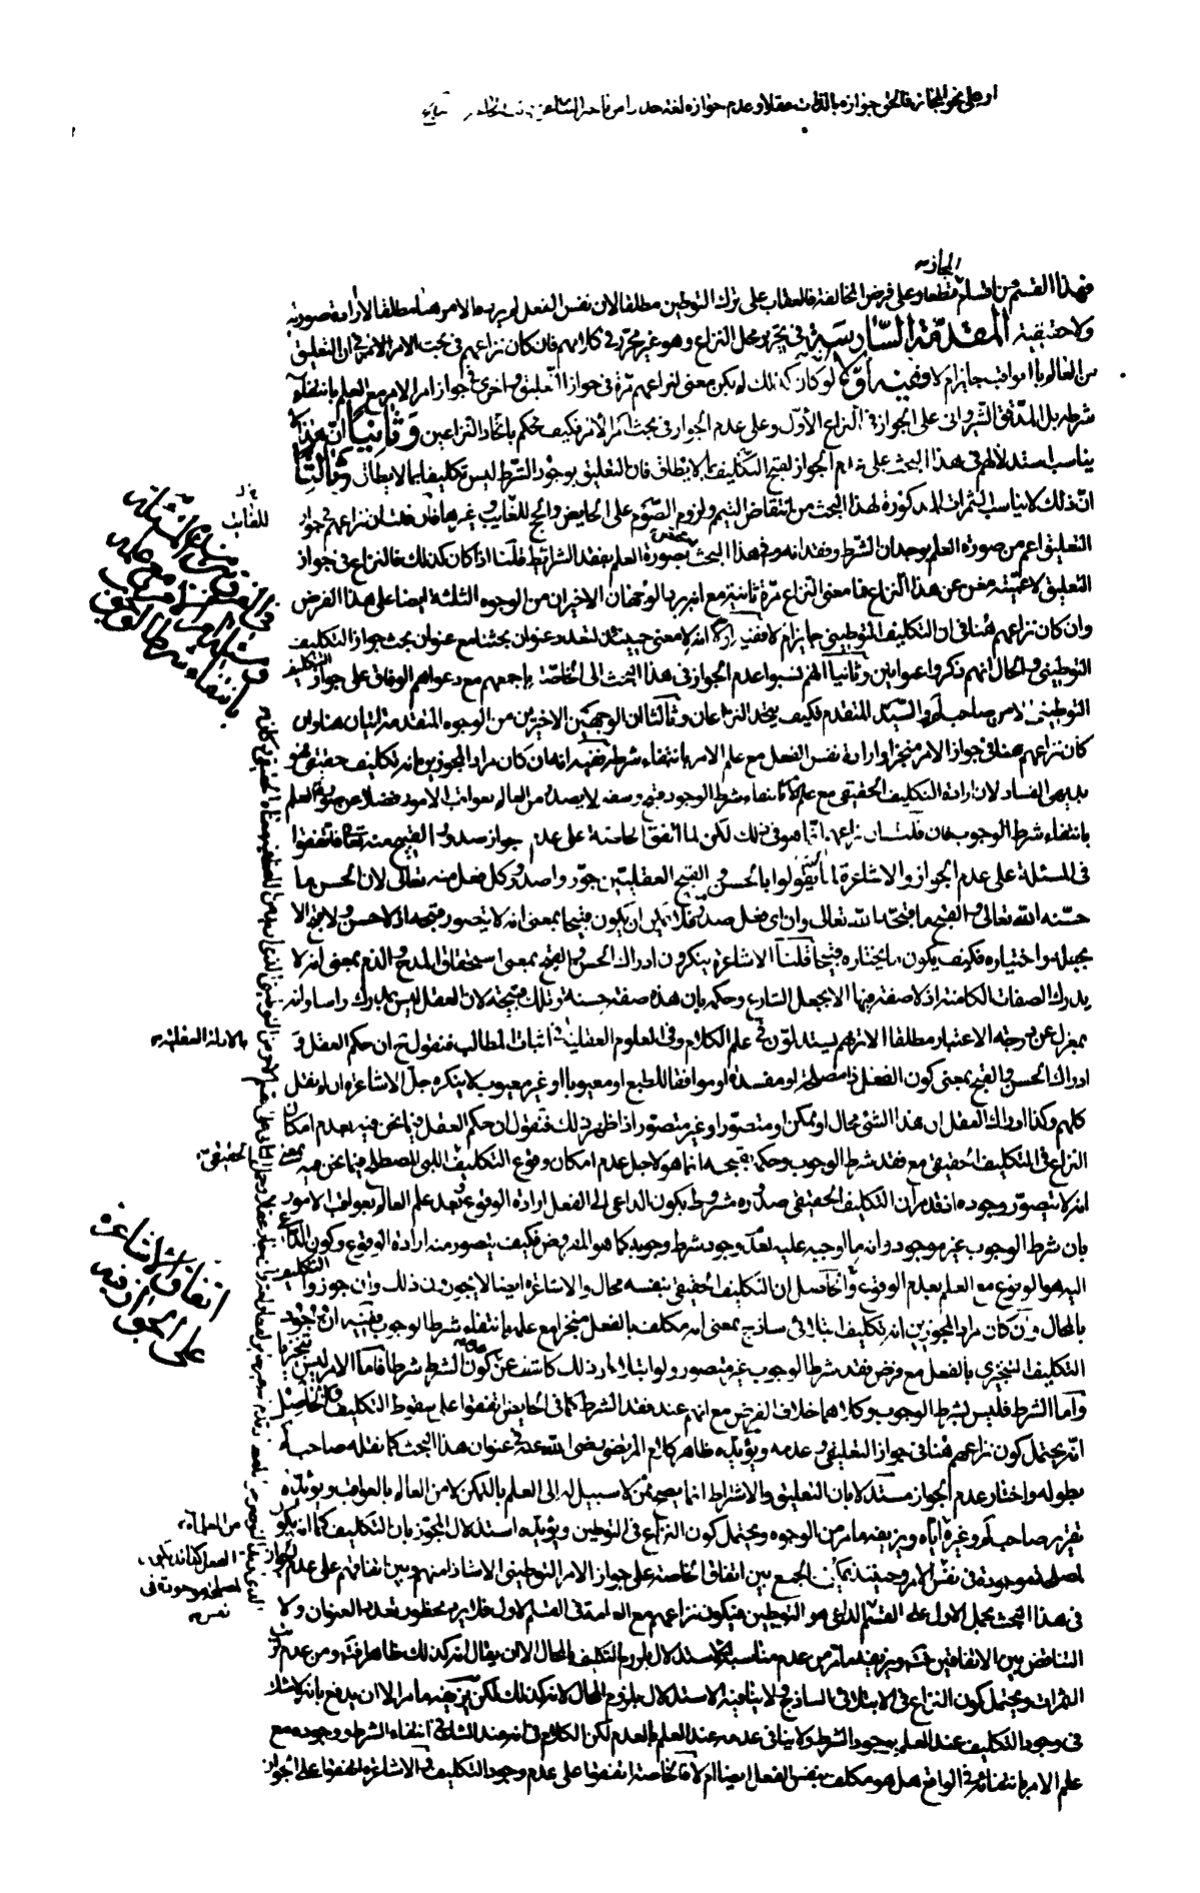 او على نحو المجاز فالحق جوازه بالذات عقلا وعدم جوازه لغة
المجازية
فهذا القسم من اقسامه قطعا وعلى فرض المخالفة فالعقاب على ترك التوطين مطلقا لان نفس الفعل لم يرد بها الامر هنا مطلقا الا ارادة صورية
ولا حقيقية المقدمة السادسة في تحرير محل النزاع وهو غير محرر في كلامهم فان كان نزاعهم في بحث الامر الامر في ان التعليق
من العالم بالعواقب جايز ام لا ففيه اولا لو كان كذلك لم يكن معنى لنزاعهم مرة في جواز التعليق واخرى في جواز امر الامر مع العلم بانتفاء
شرطه بل المدقق الشيرواني على الجواز في النزاع الأول وعلى عدم الجواز في مبحث امر الامر فكيف يحكم باتحاد النزاعين وثانيا ان هذا لا
يناسب استدلالهم في هذا البحث على عدم الجواز لقبح التكليف بما لا يطاق فان التعليق بوجود الشرط ليس تكليفا بما لا يطاق وثالثا
ان ذلك لا يناسب الثمرات المذكورة لهذا البحث من انتقاض التيمم ولزوم الصوم على الحايض والحج للغايب وغيرها فان قلت ان نزاعهم في جواز
التعليق اعم من صورة العلم بوجدان الشرط وفقدانه وفي هذا البحث بصورة العلم بفقد الشرايط قلنا اذا كان كذلك فالنزاع في جواز
التعليق لاعميته مغن عن هذا النزاع فما معنى النزاع مرة ثانية مع انه يرد الوجهان الاخيران من الوجوه الثلثة ايضا على هذا الفرض
وان كان نزاعهم هنا في ان التكليف التوطيني جايز ام لا ففيه اولا انه لا معنى حينئذ لتعدد عنوان بحثنا مع عنوان بحث جواز التكليف
التوطيني والحال انهم ذكروا عنوانين وثانيا انهم نسبوا عدم الجواز في هذا البحث الى الخاصة باجمعهم مع دعواهم الوفاق على جواز التكليف
التوطيني الامن صاحب لم والسيد المتقدم فكيف يتحد النزاعان وثالثا ان الوجهين الاخيرين من الوجوه المتقدمة اتيان هنا وان
كان نزاعهم هنا في جواز الامر منجزا وارادة نفس الفعل مع علم الامر بانتفاء شرطه ففيه انه ان كان مراد المجوزين انه تكليف حقيقي فهو
بديهي الفساد لان ارادة التكليف الحقيقي مع علم الامر بانتفاء شرط الوجود قبيح وسفه لا يصدر من العالم بعواقب الامور فضلا عن صورة العلم
بانتفاء شرط الوجوب فان قلت ان نزاعهم انما هو في ذلك لكن لما اتفق الخاصة على عدم جواز صدور القبيح منه تعالى فاتفقوا
في المسئلة على عدم الجواز والاشاعرة لما لم يقولوا بالحسن والقبح العقليين جوزوا صدور كل فعل منه تعالى لان الحسن ما
حسنه الله تعالى والقبيح ما قبحه الله تعالى وان اي فعل صدر منه فلا يمكن ان يكون قبيحا بمعنى انه لا يتصور قبحه اذ لا حسن ولا قبح الا
بجعله واختياره فكيف يكون ما يختاره قبيحا قلنا الاشاعرة ينكرون ادراك الحسن والقبح بمعنى استحقاق المدح والذم بمعنى انه لا
يدرك الصفات الكامنة اذ لا صفة فيها الا بجعل الشارع وحكمه بان هذه صفة حسنة وتلك قبيحة لان العقل ليس بمدرك راسا وانه
بمعزل عن درجة الاعتبار مطلقا الا ترهم يستدلون في علم الكلام وفي العلوم العقلية في اثبات المطالب فنقول ان حكم العقل في
بالادلة العقلية
ادراك الحسن والقبح بمعنى كون الفعل ذا مصلحة او مفسدة او موافقا للطبع او معيوبا او غير معيوب لا ينكره جل الاشاعرة ان لم نقل
كلهم وكذا ادراك العقل ان هذا الشئ محال او ممكن او متصور او غير متصور اذا ظهر ذلك فنقول ان حكم العقل فيما نحن فيه بعدم امكان
النزاع في التكليف الحقيقي مع فقد شرط الوجوب وحكمه بقبحه انما هو لاجل عدم امكان وقوع التكليف اللبي المصطلح فيما نحن فيه بمعنى
الحقيقي
انه لا يتصور وجوده اذ قد مر ان التكليف الحقيقي صدوره مشروط بكون الداعي الى الفعل ارادة الوقوع وبعد علم العالم بعواقب الامور
بان شرط الوجوب غير موجود وانه ما اوجبه عليه بعد وجود شرط وجوبه كما هو المفروض فكيف يتصور منه ارادة الوقوع وكون الداعي
اليه هو الوقوع مع العلم بعدم الوقوع والحاصل ان التكليف الحقيقي بنفسه محال والاشاعرة ايضا لا يجوزون ذلك وان جوزوا التكليف
بالمحال وان كان مراد المجوزين انه تكليف ابتلائي ساذج بمعنى انه مكلف بالفعل منجزا مع علمه بانتفاء شرط الوجوب ففيه ان وجود
التكليف التنجيزي بالفعل مع فرض فقد شرط الوجوب غير متصور ولو ابتلاء اذ ذلك كاشف عن عدم كون الشرط شرطا فاما الامر ليس منجزا
واما الشرط فليس بشرط الوجوب وكلاهما خلاف الفرض مع انهم عند فقد الشرط كما في الحايض اتفقوا على سقوط التكليف والحاصل
انه يحتمل كون نزاعهم هنا في جواز التعليق وعدمه ويؤيده ظاهر كلام المرتضى رضى الله عنه في عنوان هذا البحث كما نقله صاحب لم
بطوله واختار عدم الجواز مستدلا بان التعليق والاشتراط انما يصح ممن لا سبيل له الى العلم بالتمكن لا من العالم بالعواقب ويؤيده
تقرير صاحب لم وغيره اياه ويزيفه ما مر من الوجوه ويحتمل كون النزاع في التوطين ويؤيده استدلال المجوز بان التكليف كما انه يكون
لمصلحة موجودة في نفس الامر وحينئذ يمكن الجمع بين اتفاق الخاصة على جواز الامر التوطيني الا شاذ منهم وبين اتفاقهم على عدم الجواز
في هذا البحث بحمل الاول على القسم الذي هو التوطين فيكون نزاعهم مع العامة في القسم الاول فلا يرد محظور تعدد العنوان ولا
التناقض بين الاتفاقين ويزيفه ما مر من عدم مناسبة الاستدلال بلزوم التكليف بالمحال الا ان يقال انه كذلك ظاهرا ومن عدم
الثمرات ويحتمل كون النزاع في الابتلائي الساذج ولا ينافيه الاستدلال بلزوم المحال لانه كذلك لكن يزيفه ما مر الا ان يدفع بانه لا شك
في وجود التكليف عند العلم بوجود الشرط ولا ينافي عدمه عند العلم بالعدم لكن الكلام في انه عند الشك في انتفاء الشرط ووجوده مع
علم الامر بانتفائه في الواقع هل هو مكلف بنفس الفعل ايضا ام لا فالخاصة اتفقوا على عدم وجود التكليف والاشاعرة اتفقوا على الجواز
للغايب
في الفرق بين
بانتفاء شرط الوجوب
اتفاق الاشاعرة
على الجواز فيه
من العلماء